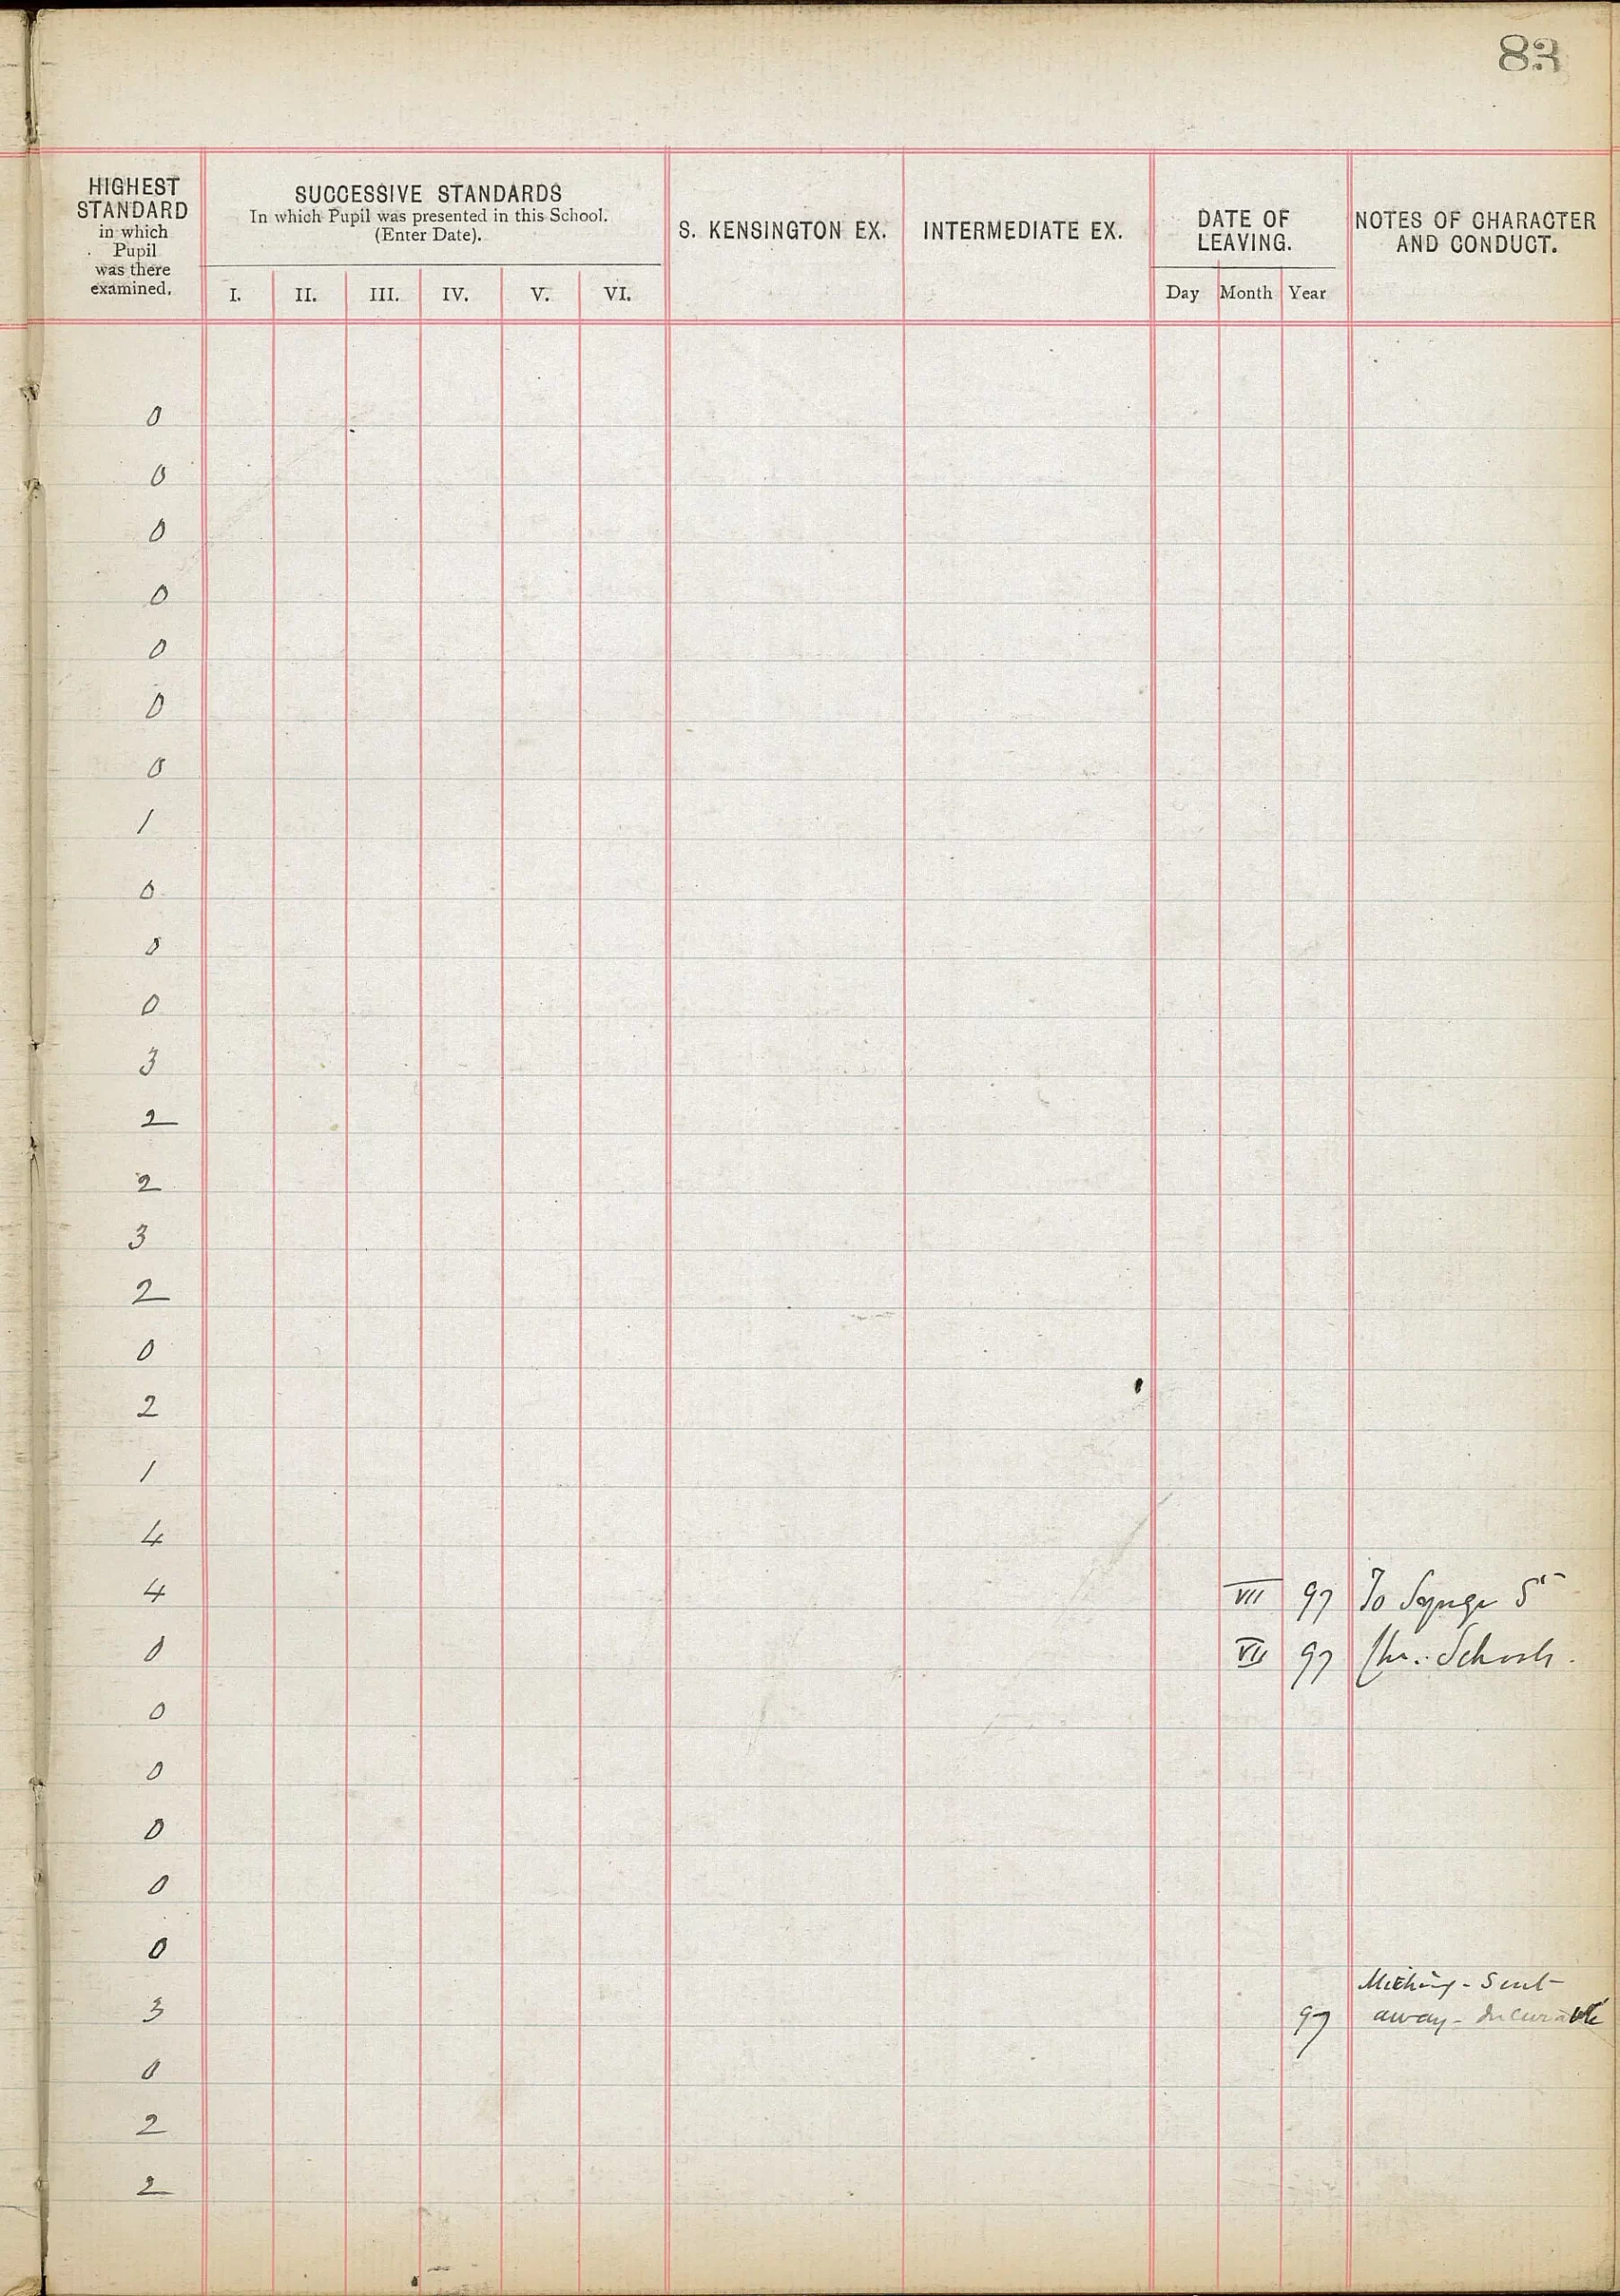 83
HIGHEST STANDARD in which Pupil was there examined.
SUCCESSIVE STANDARDS
In which Pupil was presented in this School.
(Enter Date).
I. II. III. IV. V. VI.
S. KENSINGTON EX.
INTERMEDIATE EX.
DATE OF LEAVING.
Day Month Year
NOTES OF CHARACTER AND CONDUCT.
0
0
0
0
0
0
0
1
0
0
0
3
2
2
3
2
0
2
1
4
4 VII 97 To Synge St
0 VII 97 Chr. Schools.
0
0
0
0
0
Mitching - Sent
3 97 away - Incurable
0
2
2